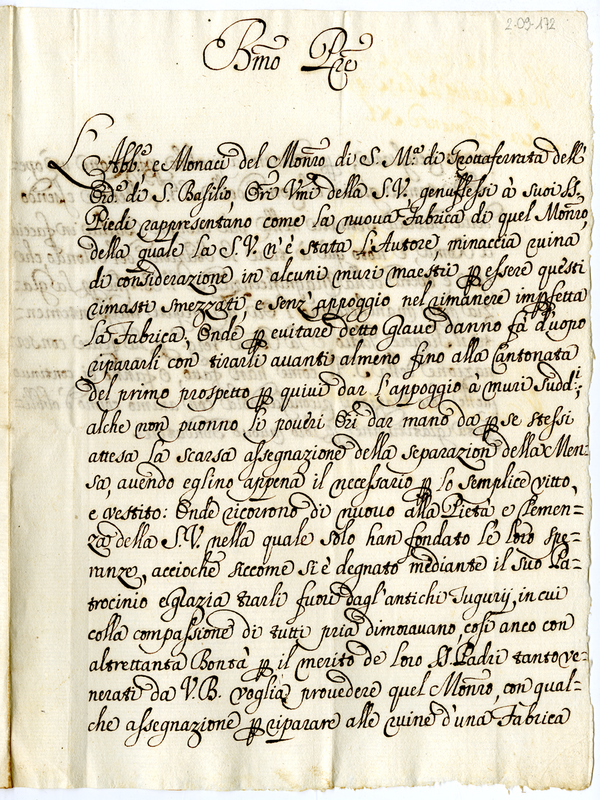 2-09-172
Bmo Pre
L'Abb.e e Monaci del Monro di S. M.a di Grottaferrata dell'
Ord.e di S. Basilio, Ori Vmi della S.V. genuflessi à suoi SS.
Piedi rappresentano come la nuova Fabrica di quel Monro,
della quale la S.V. n'è stata l'Autore, minaccia ruina
di considerazione in alcuni muri maestri p essere questi
rimasti smezzati, e senz'appoggio nel rimanere impfetta
la Fabrica, Onde p evitare detto grave danno fà d'uopo
ripararli con tirarli avanti almeno fino alla Cantonata
del primo prospetto p quivi dar l'appoggio à muri Sudd.i;
alche non puonno li poveri Ori dar mano da p se stessi
attesa la scarsa assegnazione della separazion della Men-
sa, avendo eglino appena il necessario p lo semplice vitto,
e vestito: Onde ricorrono di nuovo alla Pietà e Clemen=
za della S.V. nella quale solo han fondato le loro spe=
ranze, accioche siccome si è degnato mediante il suo Pa=
trocinio e grazia trarli fuori dagl'antichi Tugurij, in cui
colla compassione di tutti pria dimoravano, così anco con
altrettanta Bontà p il merito de loro SS. Padri tanto ve=
nerati da V.B. voglia provedere quel Monro, con qual=
che assegnazione p riparare alle ruine d'una Fabrica